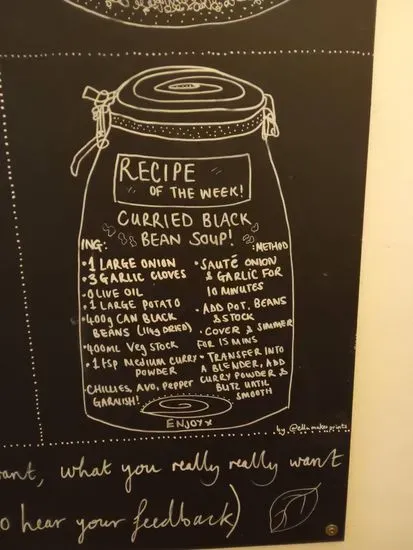 RECIPE
OF THE WEEK!
CURRIED BLACK
BEAN SOUP!
ING:
• 1 LARGE ONION
• 3 GARLIC CLOVES
• OLIVE OIL
• 1 LARGE POTATO
• 400g CAN BLACK
BEANS (114g DRIED)
• 400ML VEG STOCK
• 1 tsp MEDIUM CURRY
POWDER
CHILLIES, AVO, PEPPER
GARNISH!
:METHOD
• SAUTÉ ONION
& GARLIC FOR
10 MINUTES
• ADD POT, BEANS
& STOCK
• COVER & SIMMER
FOR 15 MINS
• TRANSFER INTO
A BLENDER, ADD
CURRY POWDER &
BLITZ UNTIL
SMOOTH
ENJOY x
want, what you really really want
o hear your feedback)